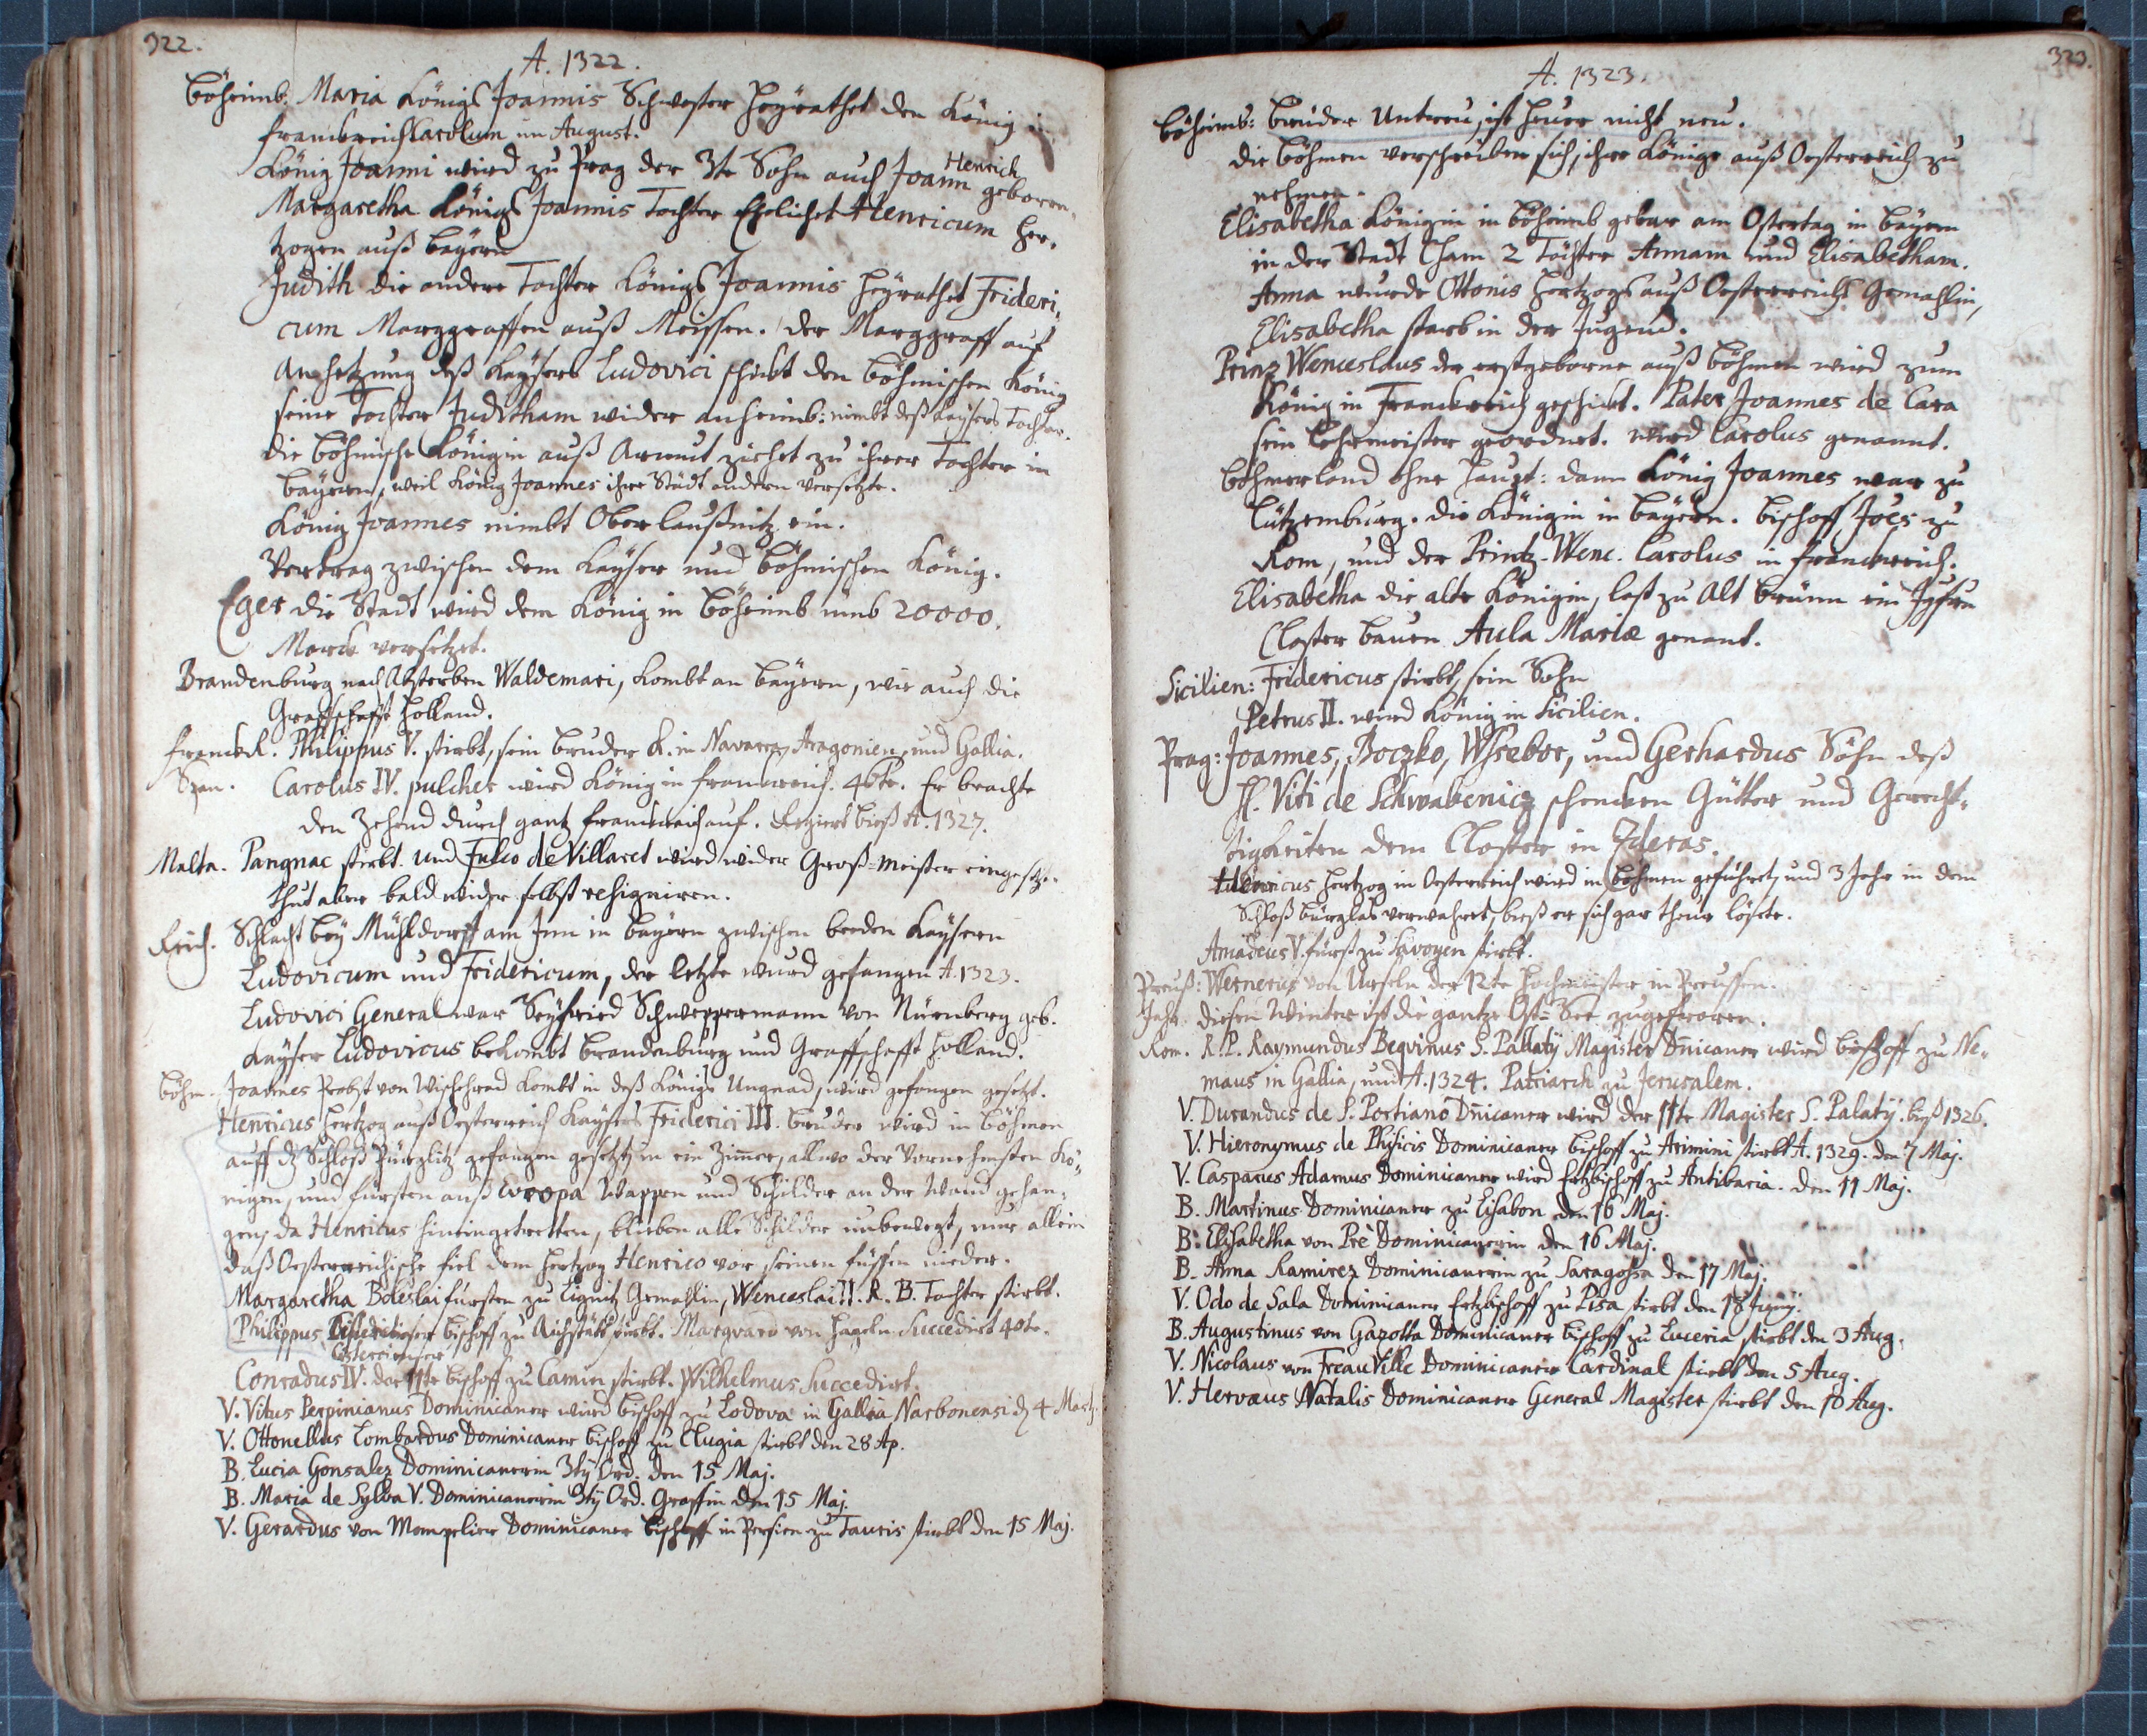 322.
A. 1322.
Böheimb. Maria Königs Joannis Schwester heyrathet den König in
Franckreich Carolum im August.
König Joanni wird zu Prag der 3te Sohn auch Joann Henrich geboren.
Margaretha Königs Joannis Tochter Ehelichet Henricum Her-
tzogen auß Bayern
Judith die andere Tochter Königs Joannis heyrathet Frideri-
cum Marggraffen auß Meissen. der Marggraff auf
anhetzung deß Kaysers Ludovici schickt den Böhmischen König
seine Tochter Juditham wider anheimb: nimbt deß Kaysers Tochter.
die Böhmische Königin auß Armut ziehet zu ihrer Tochter in
Bayern, weil König Joannes ihre Städt andern versetzte.
König Joannes nimbt Oberlaußnitz ein.
Vertrag zwischen dem Kayser und Böhmischen König.
Eger die Stadt wird dem König in Böheimb umb 20000.
Marck versetzet.
Brandenburg nach Absterben Waldemari, kombt an Bayern, wie auch die
Graffschafft Holland.
Franckr. Philippus V. stirbt, sein Bruder K. in Navarra, Aragonien, und Gallia.
Span. Carolus IV. pulcher wird König in Franckreich. 46te. Er brachte
den Zehend durch gantz Franckreich auf. Regiert bieß A. 1327.
Malta. Pangnac stirbt. und Fulco de Villaret wird wider Groß-Meister eingesetzt.
thut aber bald wider selbst resigniren.
Reich. Schlacht bey Mühldorff am Inn in Bayern zwischen beeden Kaysern
Ludovicum und Fridericum, der letzte wurd gefangen A. 1323.
Ludovici General war Seyfried Schweppermann von Nürnberg geb.
Kayser Ludovicus bekombt Brandenburg und Graffschafft Holland.
Böhm. Joannes Probst von Wischehrad kombt in deß Königs Ungnad, wird gefangen gesetzt.
Henricus Hertzog auß Oesterreich Kaysers Friderici III. Bruder wird in Böhmen
auff dz Schloß Pürglitz gefangen gesetzt, in ein Zimer, allwo der Vornehmsten Kö-
nigen, und Fürsten auß Europa Wappen und Schilder an der Wand gehan-
gen, da Henricus hineingetretten, blieben alle Schilder unbewegt, nur allein
daß Oesterreichische fiel dem Hertzog Henrico vor seinen füssen nieder.
Margaretha Boleslai Fürsten zu Lignitz Gemahlin, Wenceslai II. R. B. Tochter stirbt.
Philippus Cistercienser Bischoff zu Aichstätt stirbt. Marquard von Hageln Succedirt 40te.
Conradus IV. der 11te Bischoff zu Camin stirbt. Wilhelmus Succedirt.
V. Vitus Perpinianus Dominicaner wird Bischoff zu Lodova in Gallia Narbonensi dz 4 Martz.
V. Ottonellus Lombardus Dominicaner Bischoff zu Clugia stirbt den 28 Ap.
B. Lucia Gonsalez Dominicanerin 3tÿ Ord. den 15 Maj.
B. Maria de Sylva V. Dominicanerin 3tÿ Ord. Graffin den 15 Maj.
V. Gerardus von Mompelier Dominicaner Bischoff in Persien zu Tauris stirbt den 15 Maj.
323.
A. 1323.
Böheimb: Bruder Untreu, ist heuer nicht neu.
die Böhmen verschreiben sich, ihre Könige auß Oesterreich zu
nehmen.
Elisabetha Königin in Böheimb gebar am Ostertag in Bayern
in der Stadt Cham 2 Töchter Annam und Elisabetham.
Anna wurde Ottonis Hertzogs auß Oesterreichs Gemahlin,
Elisabetha starb in der Jugend.
Prinz Wenceslaus der erstgeborne auß Böhmen wird zum
König in Franckreich geschickt. Pater Joannes de Cara
sein Lehrmeister geordnet. wird Carolus genannt.
Böhmerland ohne Haupt: dann König Joannes war zu
Lützemburg. die Königin in Bayern. Bischoff Joës zu
Rom, und der Printz Wenc. Carolus in Franckreich.
Elisabetha die alte Königin, last zu Alt Brünn ein Jgfrn
Closter bauen Aula Mariæ genant.
Sicilien: Fridericus stirbt, sein Sohn
Petrus II. wird König in Sicilien.
Prag: Joannes, Boczko, Wssebor, und Gerhardus Söhn deß
H. Viti de Schwabenicz schencken Gütter und Gerecht-
tigkeiten dem Closter in Zderas.
Henricus Hertzog in Oesterreich wird in Böhmen geführet, und 3 Jahr in dem
Schloß Bürglas verwahret, bieß er sich gar theur lösete.
Amadeus V. Fürst zu Savoyen stirbt.
Preuß: Wernerus von Urseln der 12te Hochmeister in Preussen.
Jahr. diesen Winter ist die gantze Ost-See zugefroren.
Rom. R.P. Raymundus Beqvinus S. Pallatÿ Magister Dnicaner wird Bischoff zu Ne-
maus in Gallia, und A. 1324. Patriarch zu Jerusalem.
V. Durandus de S. Portiano Dnicaner wird der 11te Magister S. Palatÿ. bieß 1326.
V. Hieronymus de Physicis Dominicaner Bischoff zu Arimini stirbt A. 1329. den 7 Maj.
V. Casparus Adamus Dominicaner wird Ertzbischoff zu Antibaria. den 11 Maj.
B. Martinus Dominicaner zu Lisabon den 16 Maj.
B. Elisabetha von Prè Dominicanerin den 16 Maj.
B. Anna Ramirez Dominicanerin zu Saragossa den 17 Maj.
V. Odo de Sala Dominicaner Ertzbischoff zu Pisa stirbt den 18 Junÿ.
B. Augustinus von Gazotta Dominicaner Bischoff zu Luceria stirbt den 3 Aug.
V. Nicolaus von Freau Ville Dominicaner Cardinal stirbt den 5 Aug.
V. Hervæus Natalis Dominicaner General Magister stirbt den 10 Aug.